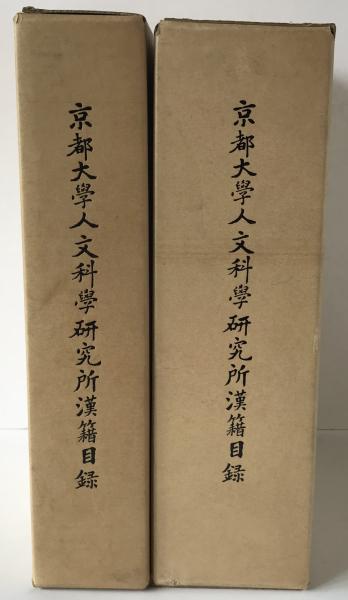 京都大學人文科學研究所漢籍目録
京都大學人文科學研究所漢籍目録